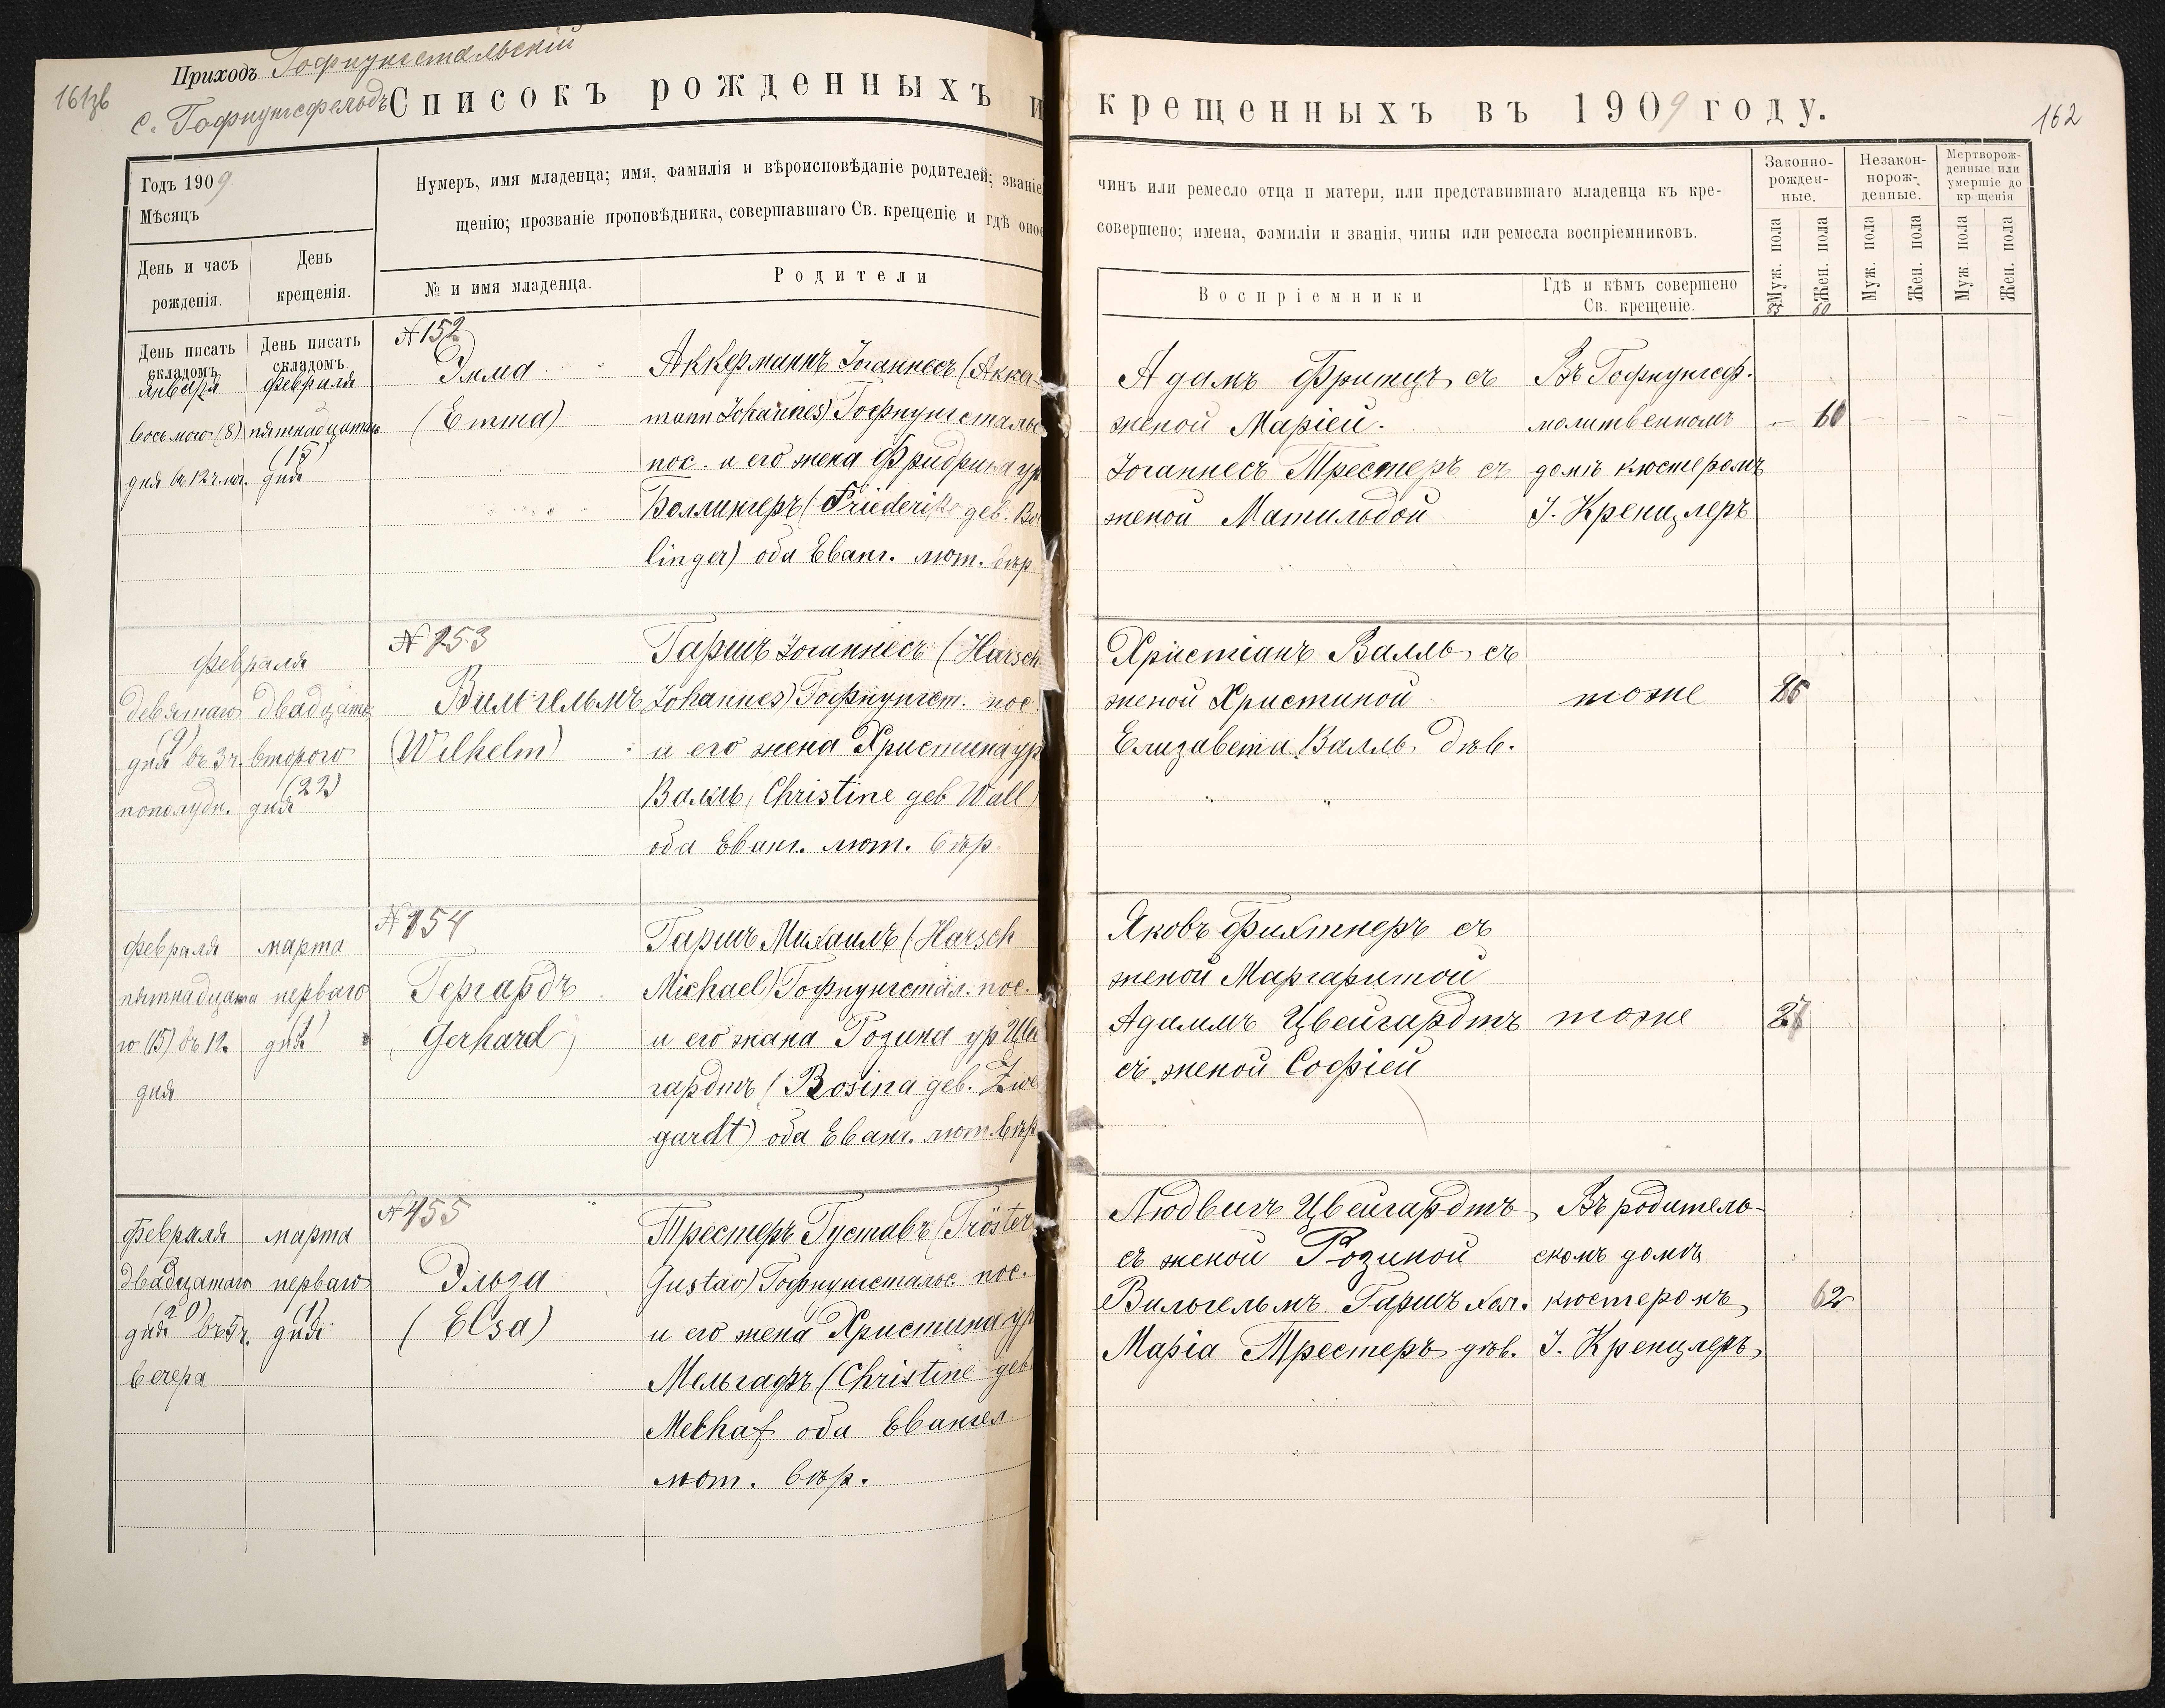 Приходъ Гофнунгстальскій
161зв
с. Гофнунгсфельдъ
Списокъ рожденныхъ и
Годъ 1909
Мѣсяцъ
Нумеръ, имя младенца; имя, фамилія и вѣроисповѣданіе родителей; званіе
щенію; прозваніе проповѣдника, совершавшаго Св. крещеніе и гдѣ оное
День и часъ
рожденія.
День
крещенія.
№ и имя младенца.
Родители
День писать
складомъ.
День писать
складомъ.
Января
восьмого (8)
дня въ 12 ч.
февраля
пятнадцатаго
(15)
дня
№ 152
Эмма
(Emma)
Аккерманнъ Іоганнесъ (Акке
mann Johannes) Гофнунгсталь
пос. и его жена Фридрика ур
Боллингеръ (Friederike geb. Bo
linger) оба Еванг. лют. вѣр
февраля
девятаго
(9)
дня въ 3 ч.
пополудн.
двадцать
второго
(22)
дня
№ 153
Вильгельмъ
(Wilhelm)
Гаршъ Іоганнесъ (Harsch
Johannes) Гофнунгст. пос.
и его жена Христина ур
Валль, Christine geb Wall)
оба Еванг. лют. вѣр.
февраля
пятнадцата
го (15) въ 12
дня
марта
перваго
(1)
дня
№ 154
Гергардъ
(Gerhard)
Гаршъ Михаилъ (Harsch
Michael) Гофнунгстал. пос.
и его жана Розина ур Цвей
гардтъ (Rosina geb. Zwe
gardt) оба Еванг. лют. вѣр
февраля
двадцатаго
(20)
дня въ 5 ч.
вечера
марта
перваго
(1)
дня
№ 155
Эльза
(Elsa)
Трестеръ Густавъ (Tröster
Gustav) Гофнунгстальс. пос.
и его жена Христина ур
Мельгафъ (Christine geb
Melhaf оба Евангел
лют. вѣр.
крещенныхъ въ 1909 году.
162
чинъ или ремесло отца и матери, или представившаго младенца къ кре-
совершено; имена, фамиліи и званія, чины или ремесла воспріемниковъ.
Воспріемники
Гдѣ и кѣмъ совершено
Св. крещеніе.
Законно-
рожден-
ные.
Незакон-
норож-
денные.
Мертворож-
денные или
умершіе до
кр щенія
Муж. пола
Жен. пола
Муж. пола
Жен. пола
Муж. пола
Жен. пола
85
80
Адамъ Фритцъ съ
женой Маріей.
Іоганнесъ Трестеръ съ
женой Матильдой
Въ Гофнунгсф.
молитвенномъ
домѣ кюстеромъ
І. Кренцлеръ
Христіанъ Валль съ
женой Христиной
Елизавета Валль дѣв.
тоже
Яковъ Фихтнеръ съ
женой Маргаритой
Адаммъ Цвейгардтъ
съ женой Софіей
тоже
Людвигъ Цвейгардтъ
съ женой Розиной
Вильгельмъ Гаршъ хол.
Марія Трестеръ дѣв.
Въ родитель-
скомъ домѣ
кюстеромъ
І. Кренцлеръ
62